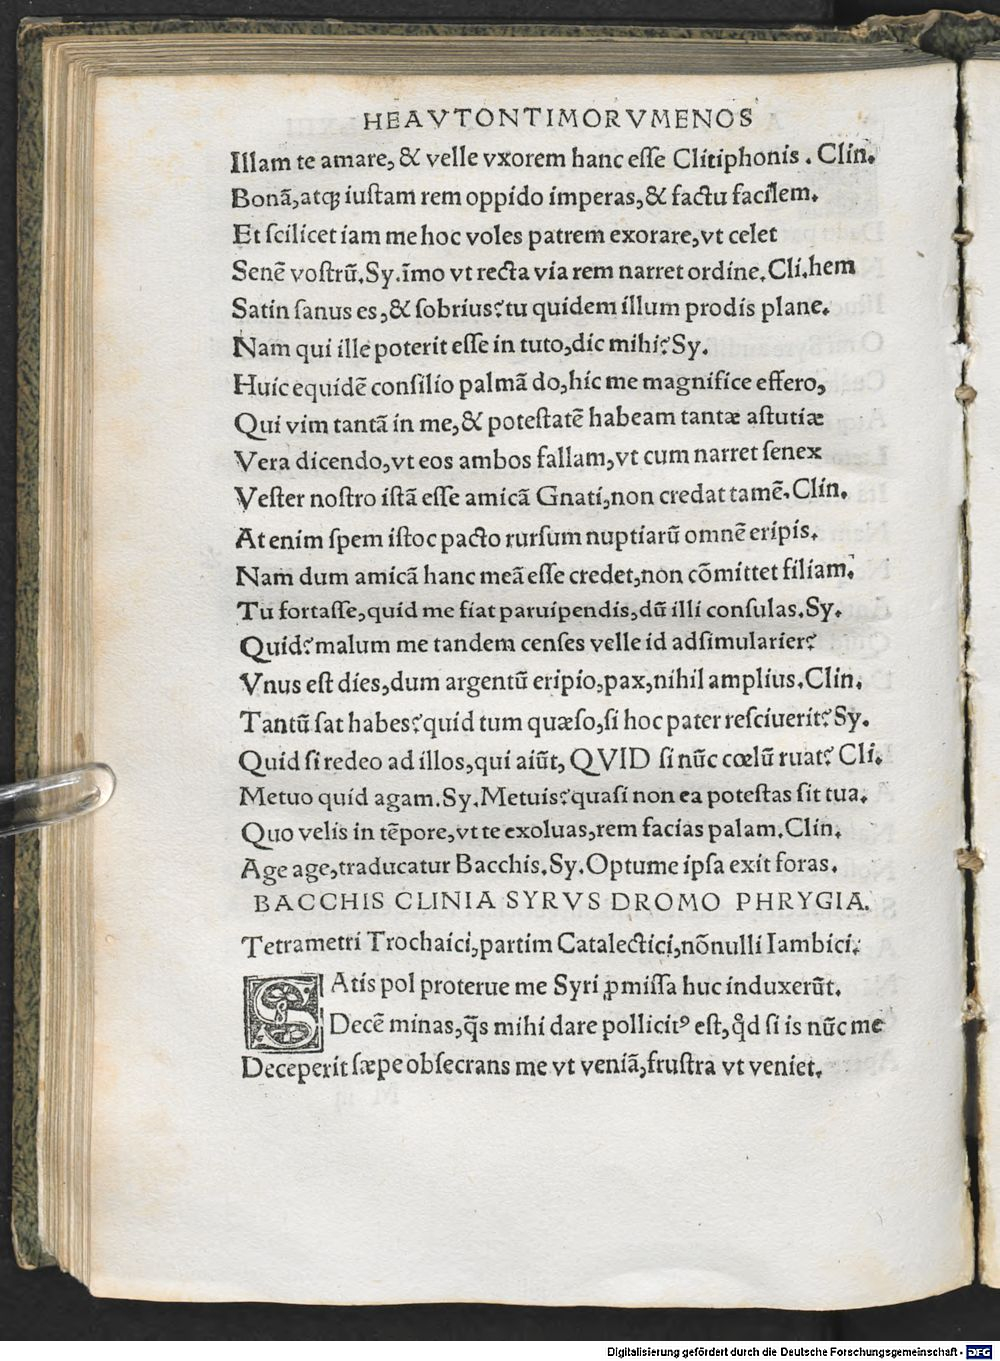 HEAVTONTIMORVMENOS
Illam te amare, & velle vxorem hanc eſſe Clitiphonis . Clin.
Bonã, atqꝫ iuſtam rem oppido imperas, & factu facilem.
Et ſcilicet iam me hoc voles patrem exorare, vt celet
Senẽ voſtrũ. Sy. ĩmo vt recta via rem narret ordine. Cli. hem
Satin ſanus es, & ſobrius? tu quidem illum prodis plane.
Nam qui ille poterit eſſe in tuto, dic mihi? Sy.
Huic equidẽ conſilio palmã do, hic me magnifice effero,
Qui vim tantã in me, & poteſtatẽ habeam tantæ aſtutiæ
Vera dicendo, vt eos ambos fallam, vt cum narret ſenex
Veſter noſtro iſtã eſſe amicã Gnati, non credat tamẽ. Clin.
At enim ſpem iſtoc pacto rurſum nuptiarũ omnẽ eripis.
Nam dum amicã hanc meã eſſe credet, non cõmittet filiam.
Tu fortaſſe, quid me fiat paruipendis, dũ illi conſulas. Sy.
Quid? malum me tandem cenſes velle id adſimularier?
Vnus eſt dies, dum argentũ eripio, pax, nihil amplius. Clin.
Tantũ ſat habes? quid tum quæſo, ſi hoc pater reſciuerit? Sy.
Quid ſi redeo ad illos, qui aiũt, QVID ſi nũc cœlũ ruat? Cli.
Metuo quid agam. Sy. Metuis? quaſi non ea poteſtas ſit tua.
Quo velis in tẽpore, vt te exoluas, rem facias palam. Clin.
Age age, traducatur Bacchis. Sy. Optume ipſa exit foras.
BACCHIS CLINIA SYRVS DROMO PHRYGIA.
Tetrametri Trochaici, partim Catalectici, nõnulli Iambici.
SAtis pol proterue me Syri ꝓmiſſa huc induxerũt.
Decẽ minas, q̃s mihi dare pollicitꝰ eſt, qd̓ ſi is nũc me
Deceperit ſæpe obſecrans me vt veniã, fruſtra vt veniet.
Digitalisierung gefördert durch die Deutsche Forschungsgemeinschaft - DFG